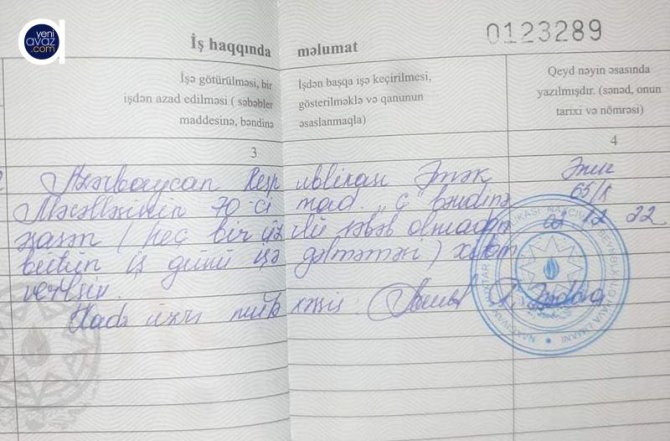 yeni
avaz
.com
İş haqqında məlumat
0123289
İşə götürülməsi, bir
işdən azad edilməsi ( səbəblər
maddəsinə, bəndinə
İşdən başqa işə keçirilməsi,
göstərilməklə və qanunun
əsaslanmaqla)
Qeyd nəyin əsasında
yazılmışdır. (sənəd, onun
tarixi və nömrəsi)
3
4
Azərbaycan Respublikası Əmək
Məcəlləsinin 70-ci mad. "ç" bəndinə
əsasən (heç bir üzrlü səbəb olmadan
bütün iş günü işə gəlməməsi) xitam
verilsin.
Kadr üzrə mütəxəssis
Əmr
65/
12 22